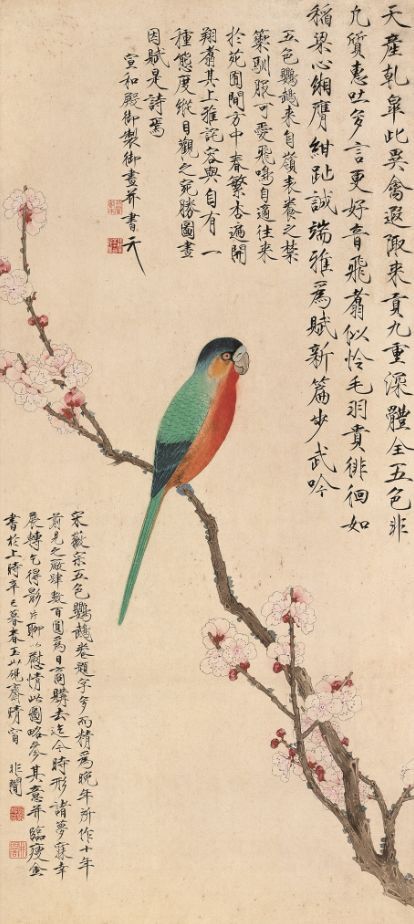 天產乾皋此異禽遐陬來貢九重深體全五色非
凡質惠吐多言更好音飛翥似怜毛羽貴徘徊如
稻粱心緗膺紺趾誠端雅為賦新篇步武吟
五色鸚鵡來自嶺表養之禁
籞馴服可愛飛鳴自適往來
於苑囿間方中春繁杏遍開
翔翥其上雅詫容與自有一
種態度縱目觀之宛勝圖畫
因賦是詩焉
宣和殿御製御畫并書
宋徽宗五色鸚鵡卷題字多而精為晚年所作十年
前見之廠肆數百圓為日商購去迄今時形諸夢寐幸
展轉乞得影片聊以慰情此圖略參其意并臨瘦金
書於上時辛巳暮春玉山硯齋晴窗 非闇